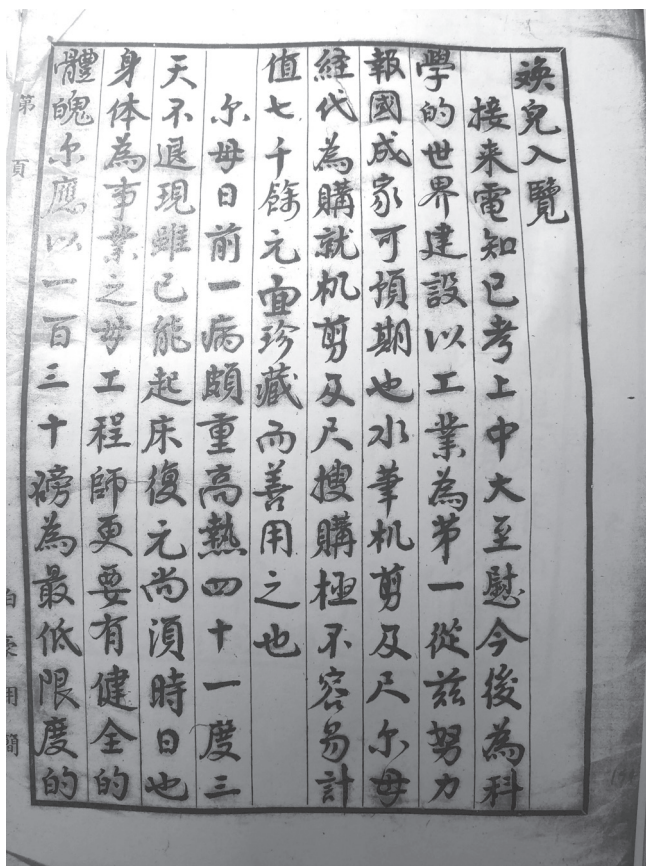 煥兒入覽
接来電知已考上中大至慰今後為科
學的世界建設以工業為苐一從兹努力
報國成家可預期也水筆机剪及尺尔母
經代為購就机剪及尺搜購極不容易計
值七千餘元宜珍藏而善用之也
尔母日前一病頗重高熱四十一度三
天不退現雖已能起床復元尚須時日也
身体為事業之母工程師更要有健全的
體魄尔應以一百三十磅為最低限度的
第 頁
用簡